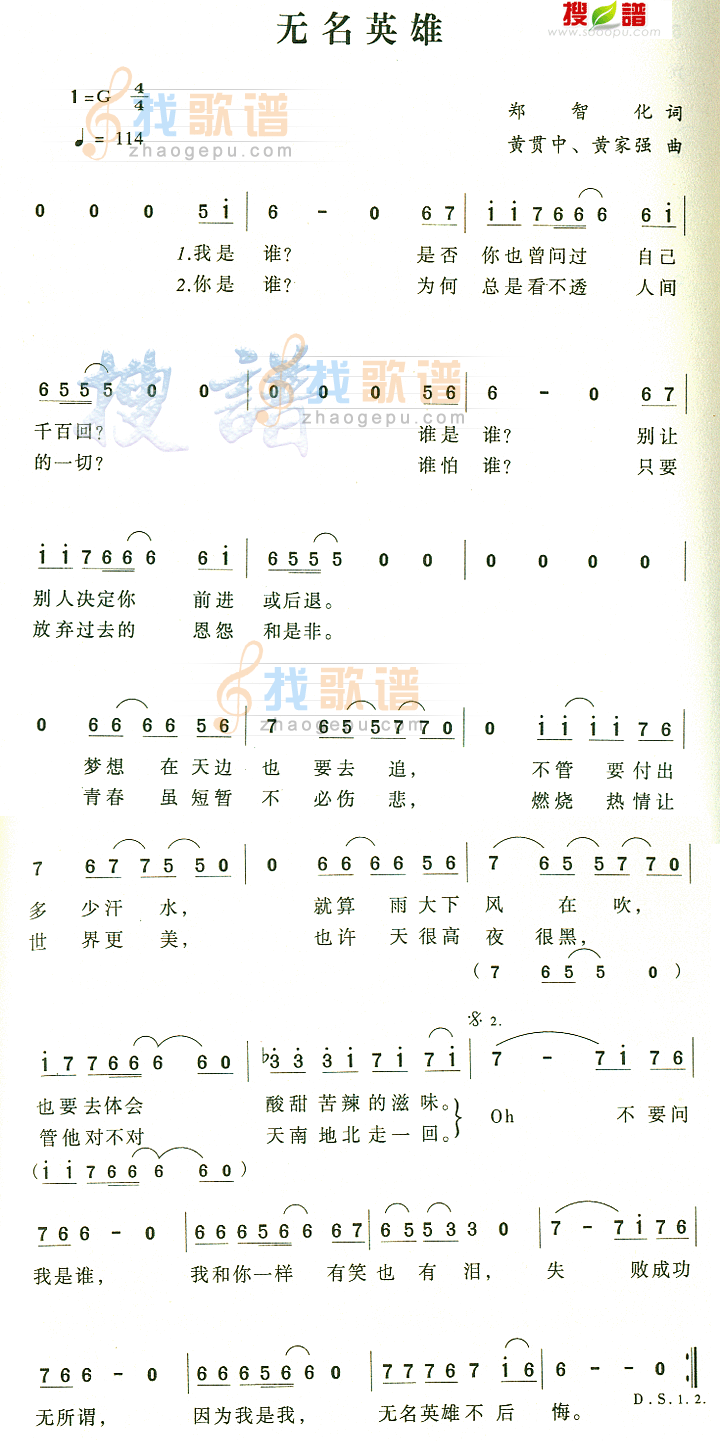 无名英雄
搜谱
www.sooopu.com
1=G 4/4
找歌谱
♩= 114
zhaogepu.com
郑 智 化 词
黄贯中、黄家强 曲
0 0 0 5i | 6 - 0 67 | i i 7 6 6 6 6 i |
1.我是 谁? 是否 你也曾问过 自己
2.你是 谁? 为何 总是看不透 人间
6 5 5 5 0 0 | 0 0 0 56 | 6 - 0 67 |
搜谱
找歌谱
zhaogepu.com
千百回? 谁是 谁? 别让
的一切? 谁怕 谁? 只要
i i 7 6 6 6 6 i | 6 5 5 5 0 0 | 0 0 0 0 |
别人决定你 前进 或后退。
放弃过去的 恩怨 和是非。
找歌谱
zhaogepu.com
0 6 6 6 6 56 | 7 6 5 5 7 7 0 | 0 i i i i 7 6 |
梦想 在天边 也 要去 追, 不管 要付出
青春 虽短暂 不 必伤 悲, 燃烧 热情让
7 6 7 7 5 5 0 | 0 6 6 6 6 5 6 | 7 6 5 5 7 7 0 |
多 少汗 水, 就算 雨大下 风 在 吹,
世 界更 美, 也许 天很高 夜 很黑,
( 7 6 5 5 0 )
𝄋 2.
i 7 7 6 6 6 6 0 | ♭3 3 3 i 7 i 7 i | 7 - 7 i 7 6 |
也要去体会 酸甜苦辣的滋味。
管他对不对 天南地北走一回。
Oh 不要问
( i i 7 6 6 6 6 0 )
7 6 6 - 0 | 6 6 6 5 6 6 6 7 | 6 5 5 3 3 3 0 | 7 - 7 i 7 6 |
我是谁, 我和你一样 有笑也 有 泪, 失 败成功
7 6 6 - 0 | 6 6 6 5 6 6 0 | 7 7 7 6 7 i 6 | 6 - - 0 :||
无所谓, 因为我是我, 无名英雄不 后 悔。
D.S.1.2.